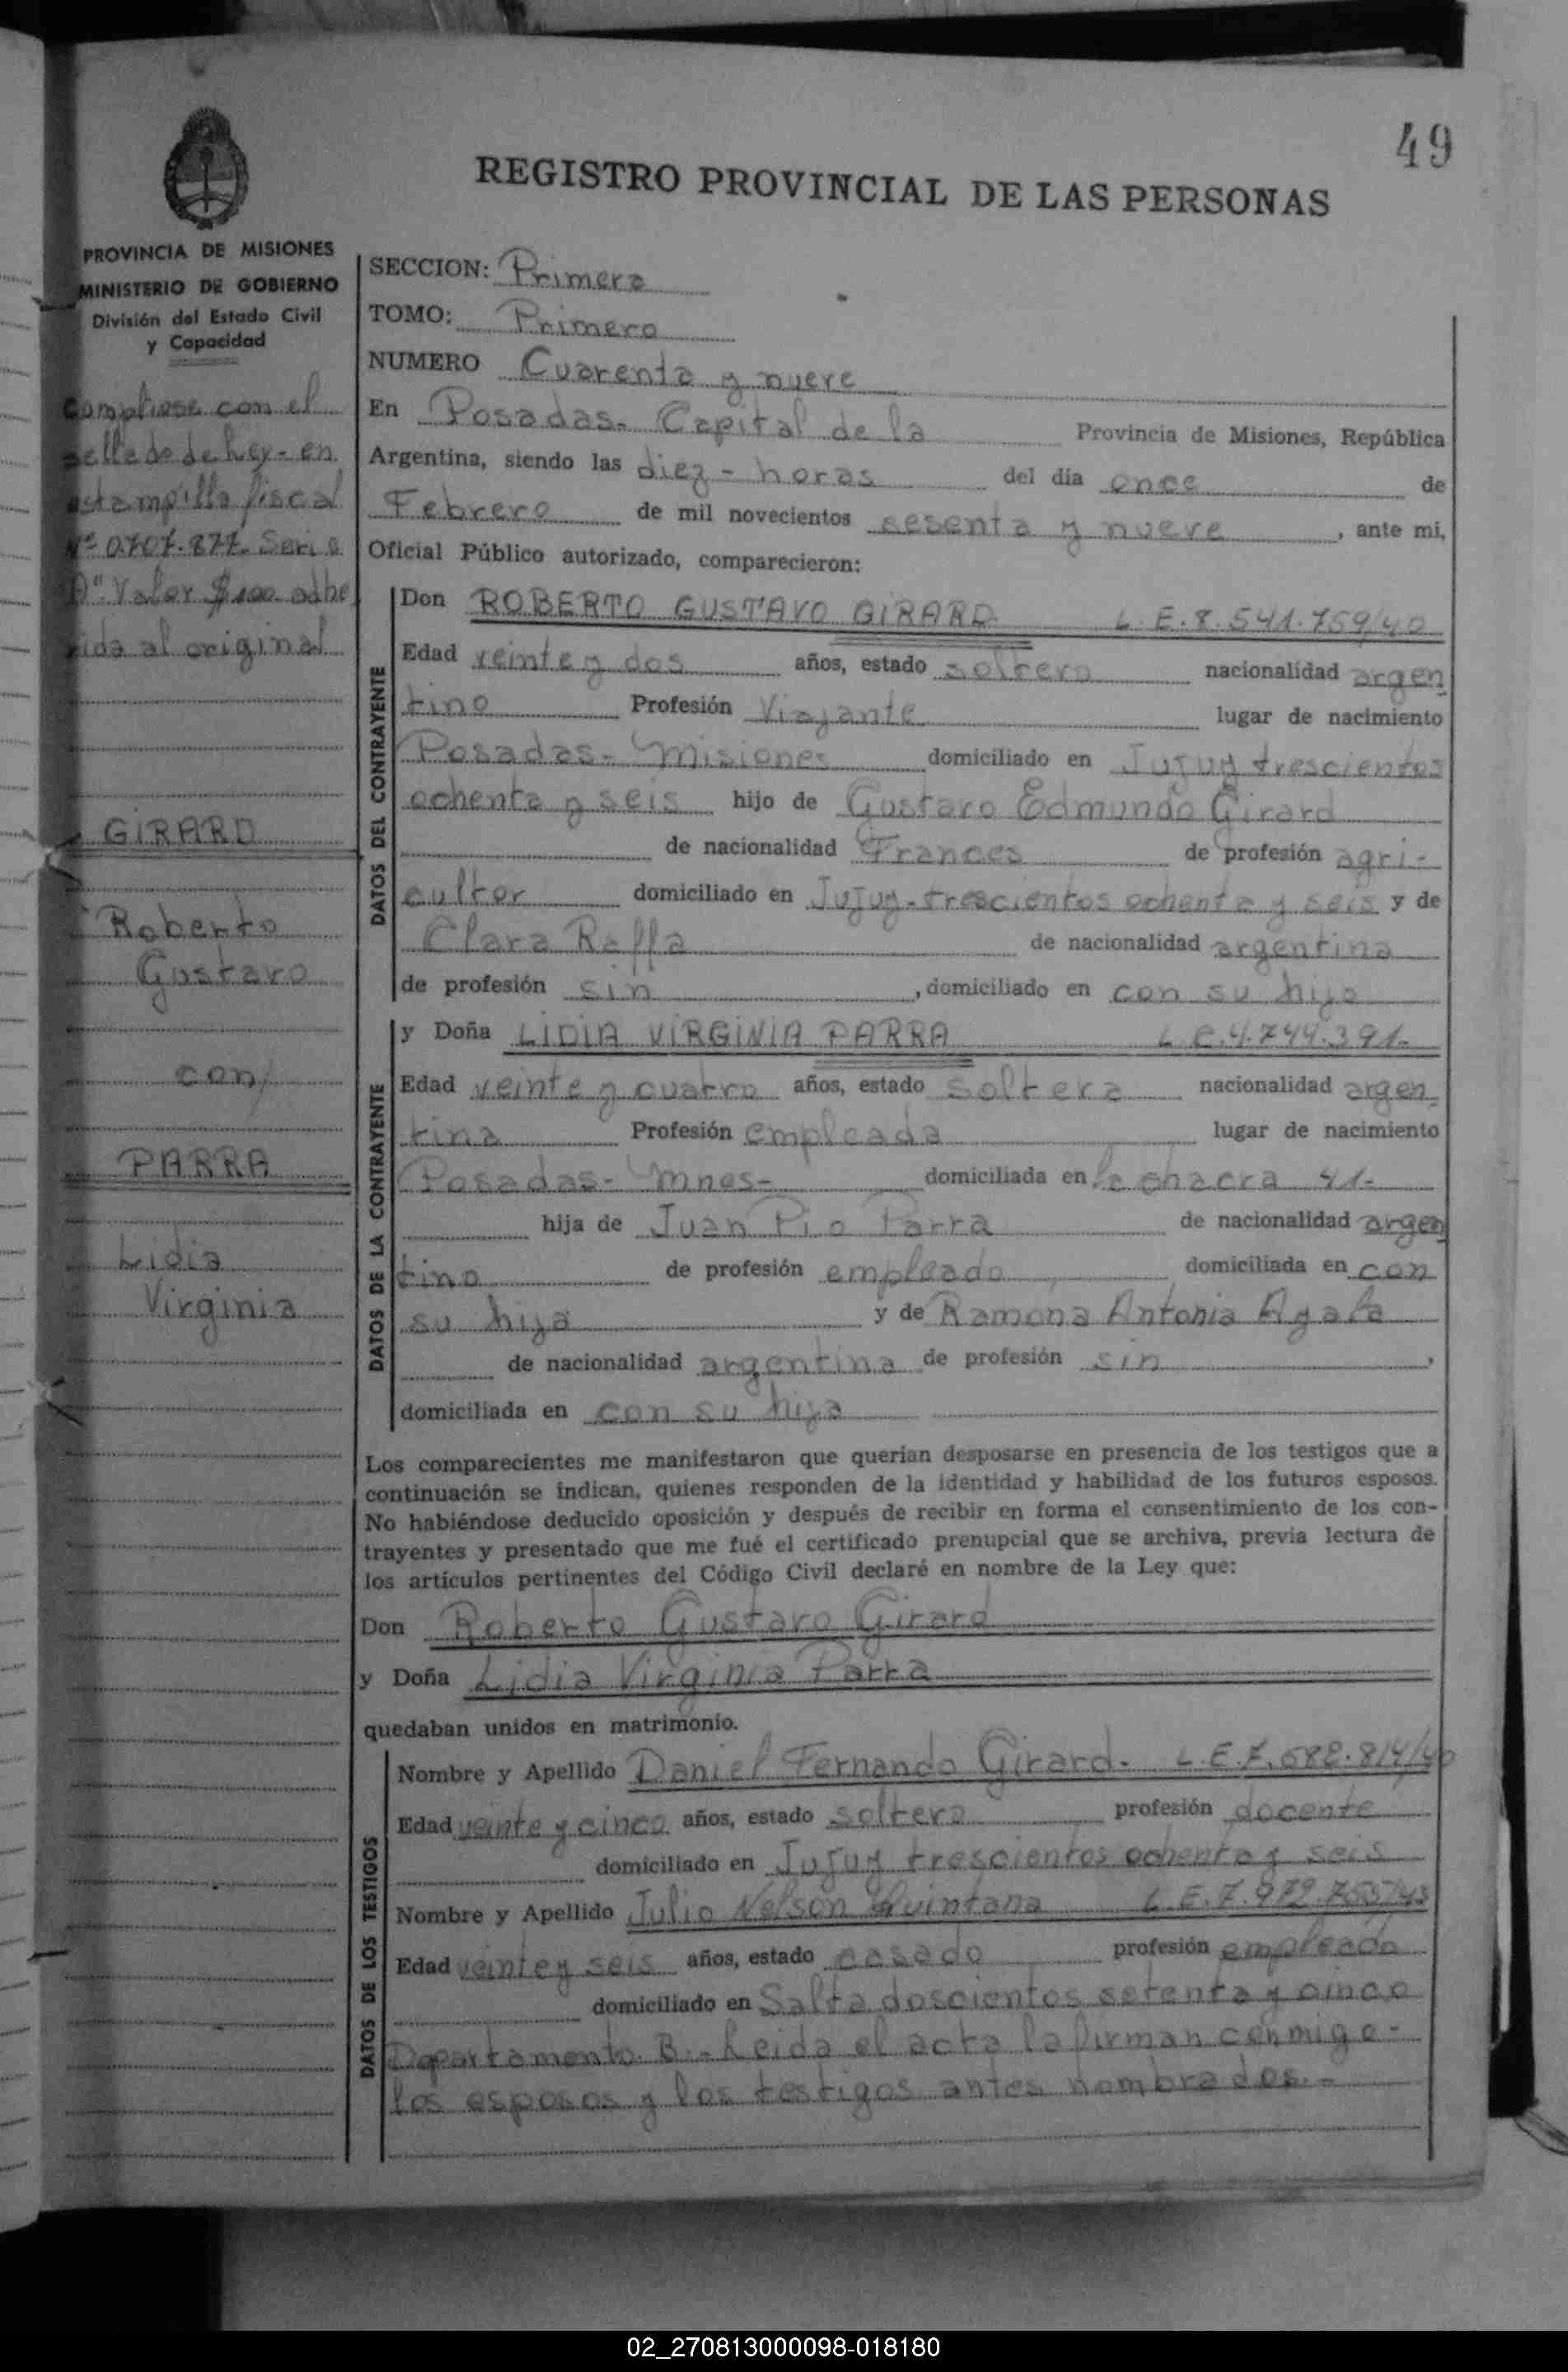 49
REGISTRO PROVINCIAL DE LAS PERSONAS
PROVINCIA DE MISIONES
MINISTERIO DE GOBIERNO
División del Estado Civil
y Capacidad
Compliose con el
sellado de Ley - en
estampilla fiscal
Nº 0.707.877. Serie
"A" Valor $100 adhe
rida al original
GIRARD
Roberto
Gustavo
con/
PARRA
Lidia
Virginia
SECCION: Primera
TOMO: Primero
NUMERO Cuarenta y nueve
En Posadas. Capital de la Provincia de Misiones, República
Argentina, siendo las diez - horas del día once de
Febrero de mil novecientos sesenta y nueve, ante mi,
Oficial Público autorizado, comparecieron:
DATOS DEL CONTRAYENTE
Don ROBERTO GUSTAVO GIRARD L. E. 8.541.759/40
Edad veinte y dos años, estado soltero nacionalidad argen
tino Profesión Viajante lugar de nacimiento
Posadas - Misiones domiciliado en Jujuy trescientos
ochenta y seis hijo de Gustavo Edmundo Girard
de nacionalidad Frances de profesión agri-
cultor domiciliado en Jujuy - trescientos ochenta y seis y de
Clara de nacionalidad argentina
de profesión sin, domiciliado en con su hijo
DATOS DE LA CONTRAYENTE
y Doña LIDIA VIRGINIA PARRA L C. 4.744.391.-
Edad veinte y cuatro años, estado soltera nacionalidad argen
tina Profesión empleada lugar de nacimiento
Posadas - Mnes - domiciliada en la chacra 41.-
hija de Juan Pio Parra de nacionalidad argen
tino de profesión empleado domiciliada en con
su hija y de Ramona Antonia Ayala
de nacionalidad argentina de profesión sin,
domiciliada en con su hija
Los comparecientes me manifestaron que querían desposarse en presencia de los testigos que a
continuación se indican, quienes responden de la identidad y habilidad de los futuros esposos.
No habiéndose deducido oposición y después de recibir en forma el consentimiento de los con-
trayentes y presentado que me fué el certificado prenupcial que se archiva, previa lectura de
los artículos pertinentes del Código Civil declaré en nombre de la Ley que:
Don Roberto Gustavo Girard
y Doña Lidia Virginia Parra
quedaban unidos en matrimonio.
DATOS DE LOS TESTIGOS
Nombre y Apellido Daniel Fernando Girard. L. E. 7.688.814/40
Edad veinte y cinco años, estado soltero profesión docente
domiciliado en Jujuy trescientos ochenta y seis
Nombre y Apellido Julio Nelson Quintana L. E. 7.972.755/43
Edad veinte y seis años, estado casado profesión empleado
domiciliado en Salta doscientos setenta y cinco
Departamento B.- Leida el acta la firman conmigo -
los esposos y los testigos antes nombrados.-
02_270813000098-018180